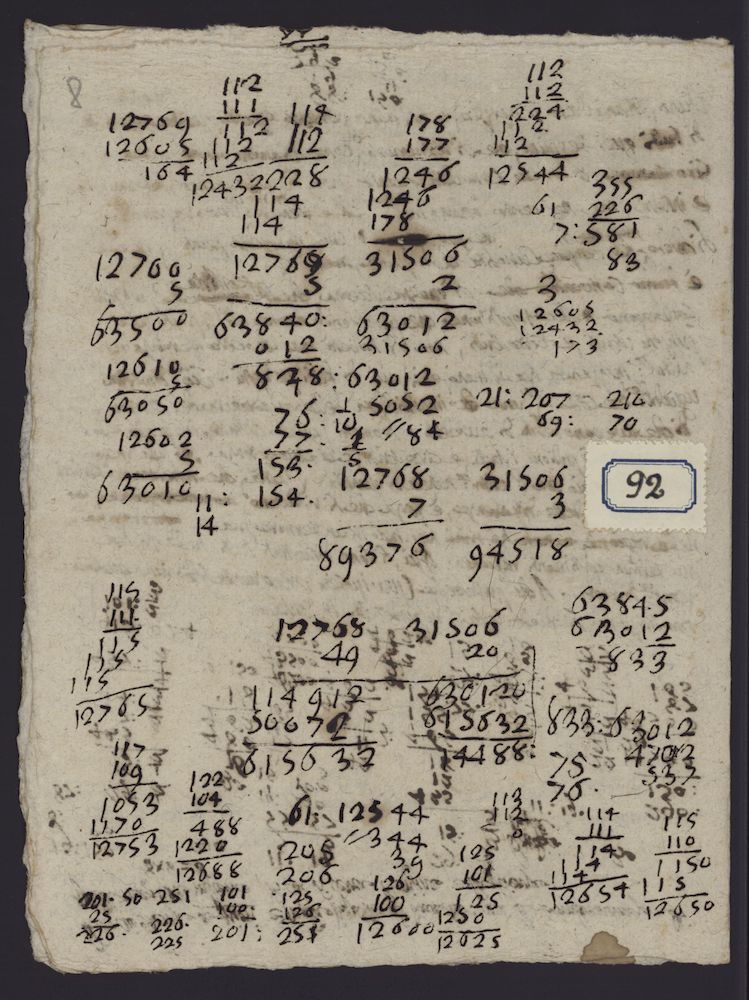 8
112
111
112
112
112
12432
12769
12605
164
114
112
228
114
114
12768
5
63840
012
828
178
177
1246
1246
178
31506
2
63012
31506
63012
5052
84
112
112
224
112
112
12544
61
355
226
7:581
83
12700
5
63500
12610
5
63050
12602
5
63010
11
14
3
12605
12432
173
76:
77:
153.
154.
21: 207 210
69: 70
12768
7
89376
31506
3
94518
92
115
111
115
115
115
12765
12768
49
114912
50072
615632
31506
20
630120
615632
14488:
63845
63012
833
833:63012
75
76.
117
109
1053
1170
12753
122
104
488
1220
12688
61: 12544
344
39
205
206
113
112
114
111
114
114
12654
115
110
1150
115
12650
201. 50 251
25
226.
226.
225
101
100
201:
125
126
251
126
100
12600
125
101
125
1250
12625